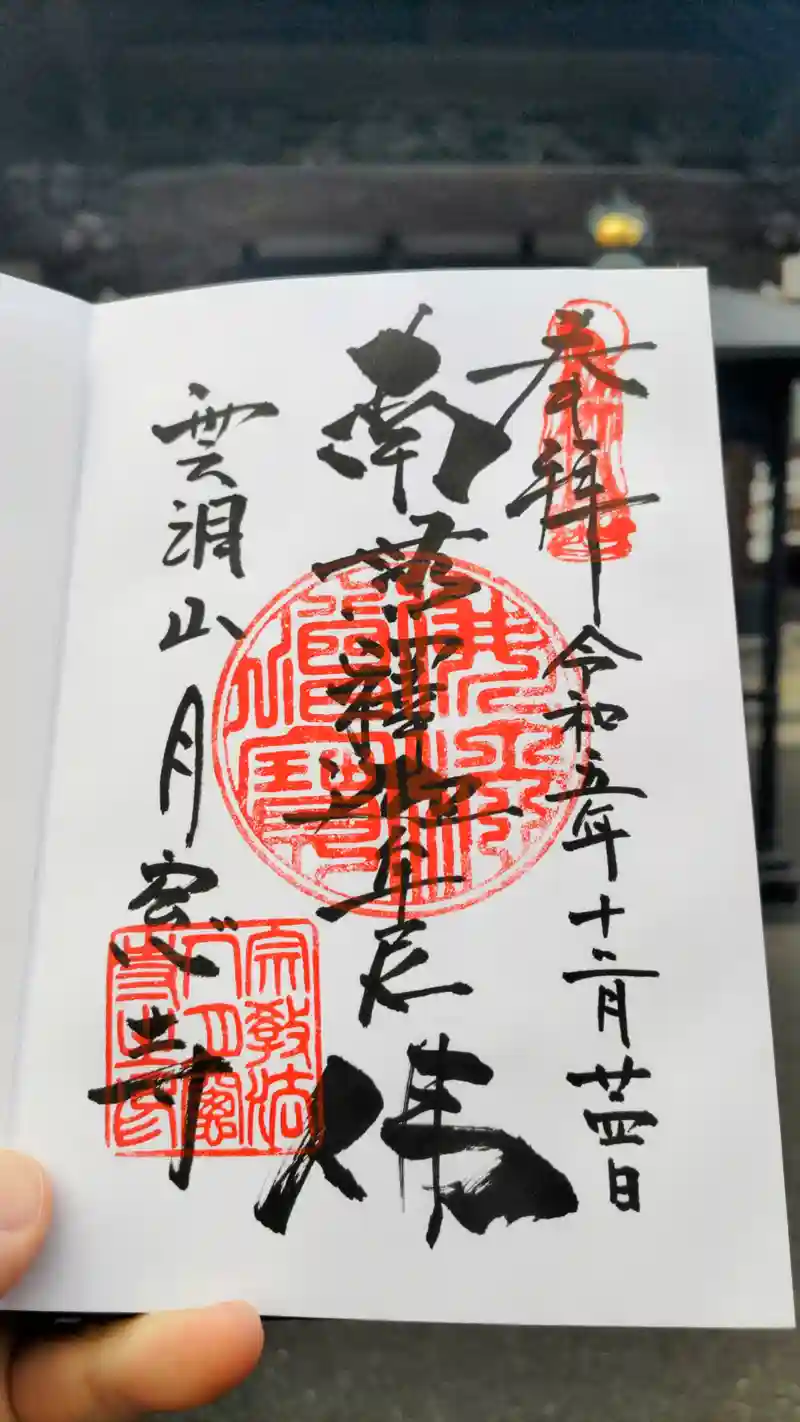 奉拝 令和五年十二月廿四日
南無釋迦牟尼佛
雲洞山 月窓寺
佛法僧寶
宗教法人月窗寺之印